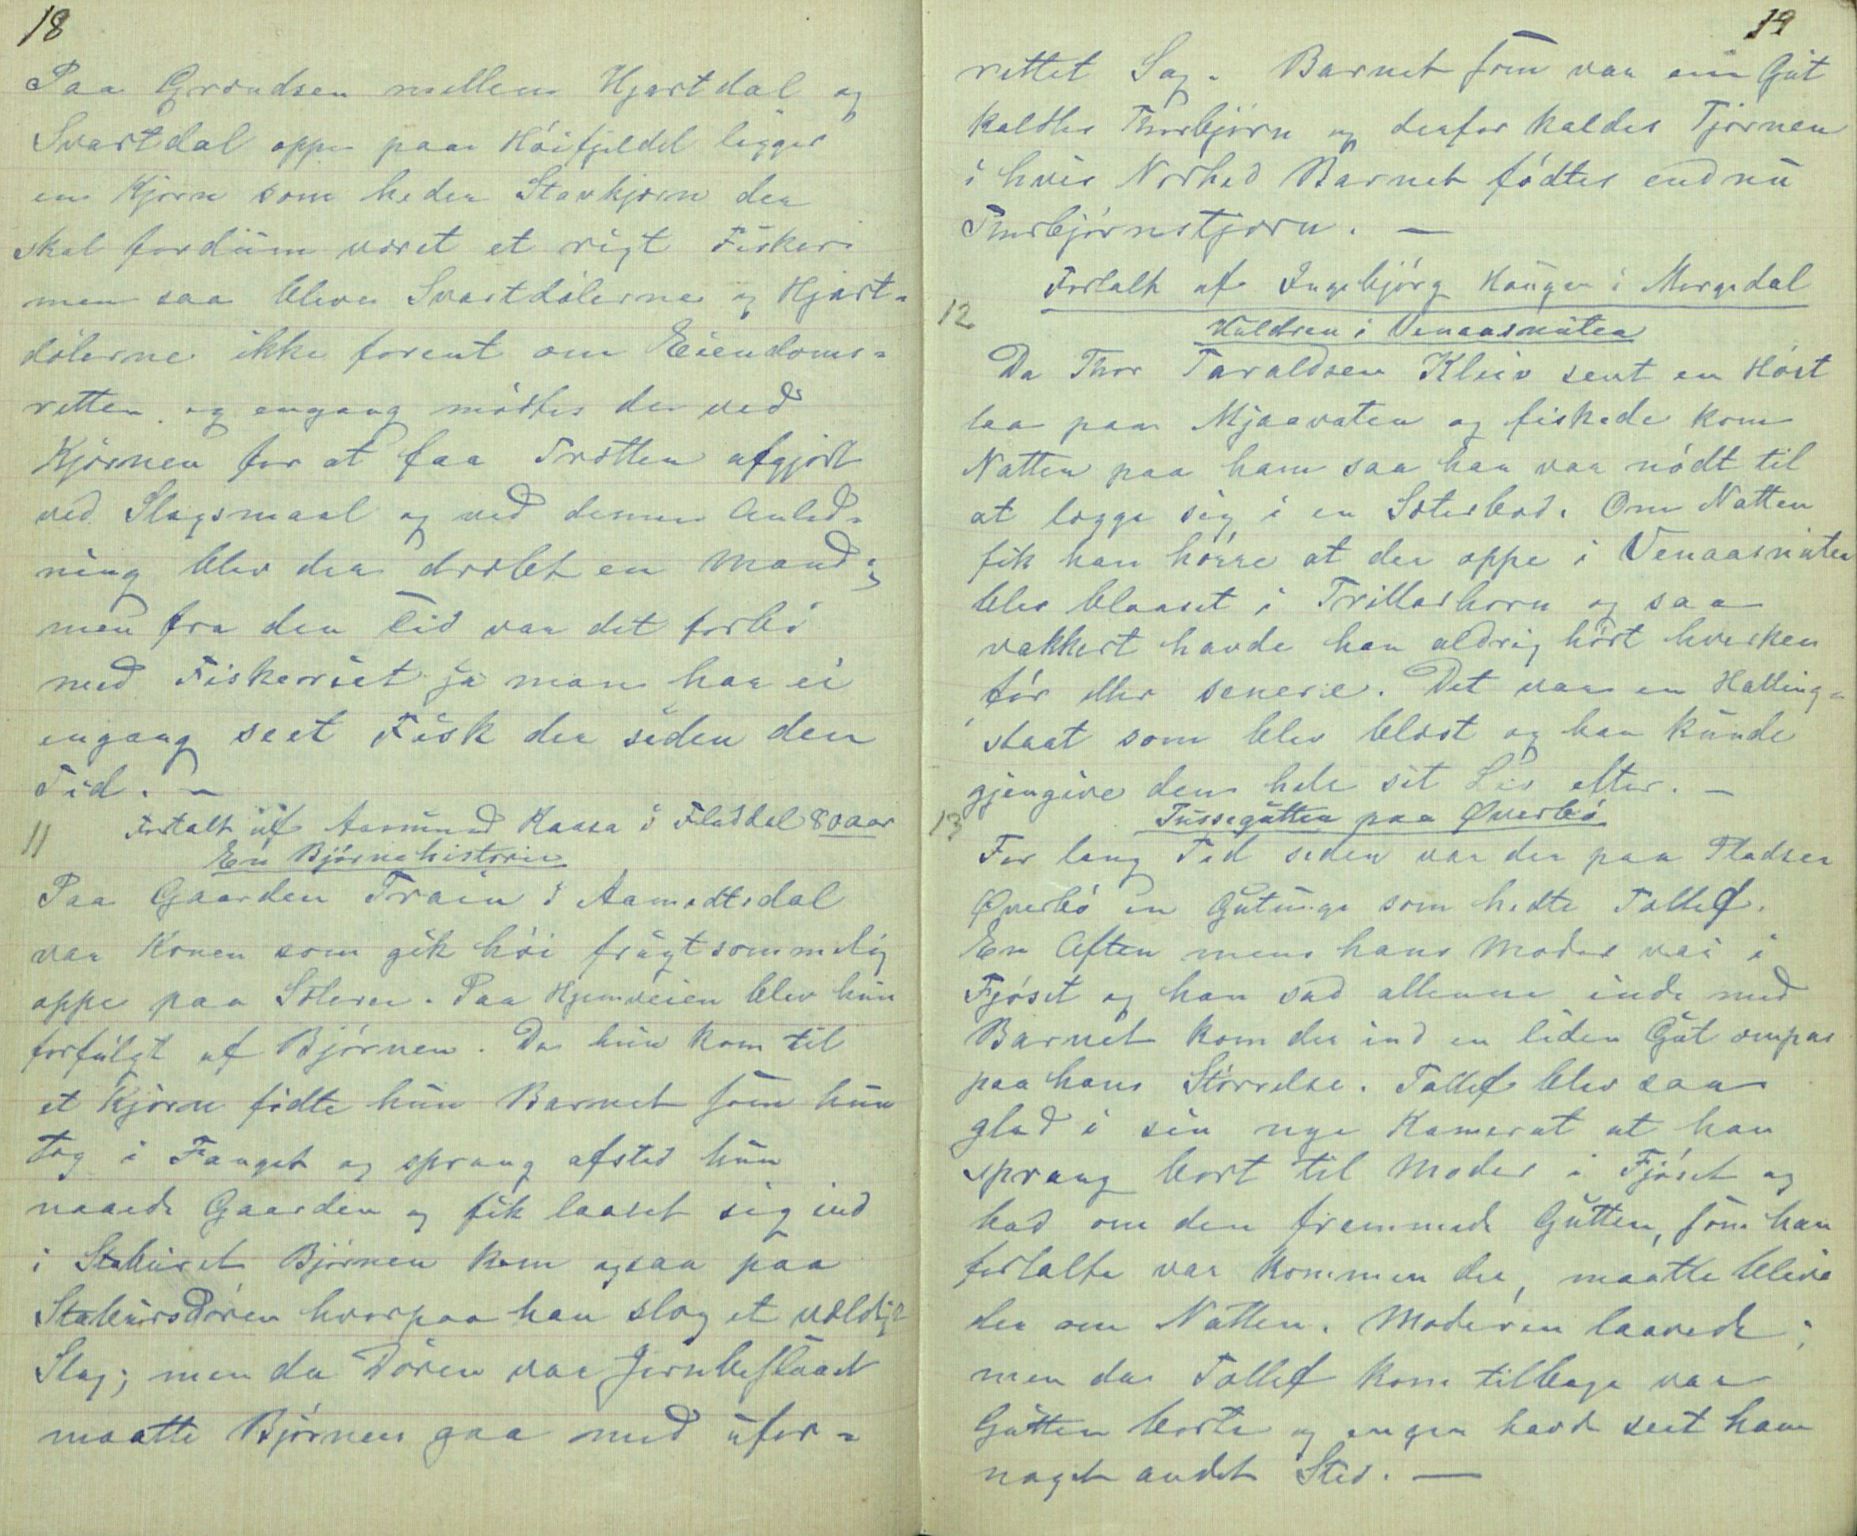 18
Paa Grændsen mellem Hjartdal og
Svartdal oppe paa Höifjeldet ligger
en Kjørn som heder Stavkjørn der
skal fordum været et rigt Fiskeri
men saa bleve Svartdølerne og Hjart-
dølerne ikke forent om Eiendoms-
retten og engang mödtes de ved
Kjørnen for at faa Trætten afgjort
ved Slagsmaal og ved denne Anled-
ning blev der dræbt en Mand;
men fra den Tid var det forbi
med Fiskeriet ja man har ei
engang seet Fisk der siden den
Tid. –
Fortalt af Aamund Kaasa i Flatdal 80 aar
11 En Björnehistorie
Paa Gaarden Traen i Aamotsdal
var Konen som gik höi frugtsommelig
oppe paa Sæteren. Paa Hjemveien blev hun
forfulgt af Björnen. Da hun kom til
et Kjørn födte hun Barnet som hun
tog i Fanget og sprang afsted hun
naaede Gaarden og fik laaset sig ind
i Stabüret Björnen kom ogsaa paa
Stabürsdören hvorpaa han slog et vældigt
Slag; men da Dören var Jernbeslaaet
maatte Björnen gaa med ufor-
19
rettet Sag. Barnet som var en Gut
kaldtes Thorbjörn og derfor kaldes Tjørnen
i hvis Nærhed Barnet födtes endnu
Thorbjörnstjørn. —
Fortalt af Ingebjörg Haugen i Morgedal
12 Huldren i Venaasnuten
Da Thor Taraldsen Kleiv sent en Höst
laa paa Mjaavaten og fiskede kom
Natten paa ham saa han var nödt til
at lægge sig i en Sæterbod. Om Natten
fik han hörre at der oppe i Venaasnuten
blev blaaset i Trillarhorn og saa
vakkert havde han aldrig hört hverken
för eller senere. Det var en Halling-
slaat som blev blæst og han kunde
gjengive den hele sit Liv efter. —
13 Tussegutten paa Øverbö
For lang Tid siden var der paa Pladsen
Øverbö en Gutunge som hedte Tollef.
En Aften mens hans Moder var i
Fjöset og han sad allenne inde med
Barnet kom der ind en liden Gut ompas
paa hans Störrelse. Tollef blev saa
glad i sin nye Kamerat at han
sprang bort til Moder i Fjöset og
bad om den fremmede Gutten, som han
fortalte var kommen der, maatte blive
der om Natten. Moderen laavede;
men da Tollef kom tilbage var
Gutten borte og engen havde seet ham
noget andet Sted. —